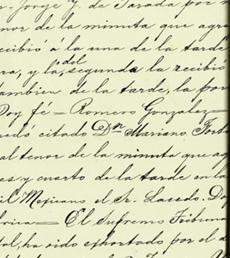 Jorge Y. de Parada por m
nor de la minuta que agre
ecibió á la una de la tarde
ra, y la, del segunda la recibió
ambien de la tarde, la por
Doy fé — Romero Gonzalez —
uedó citado Dn Mariano, Forto
al tenor de la minuta que ag
es y cuarto de la tarde en la
il Mexicano el Sr. Lacedo. Do
brica — El Supremo Tribuna
tol, ha sido exhortado por el d